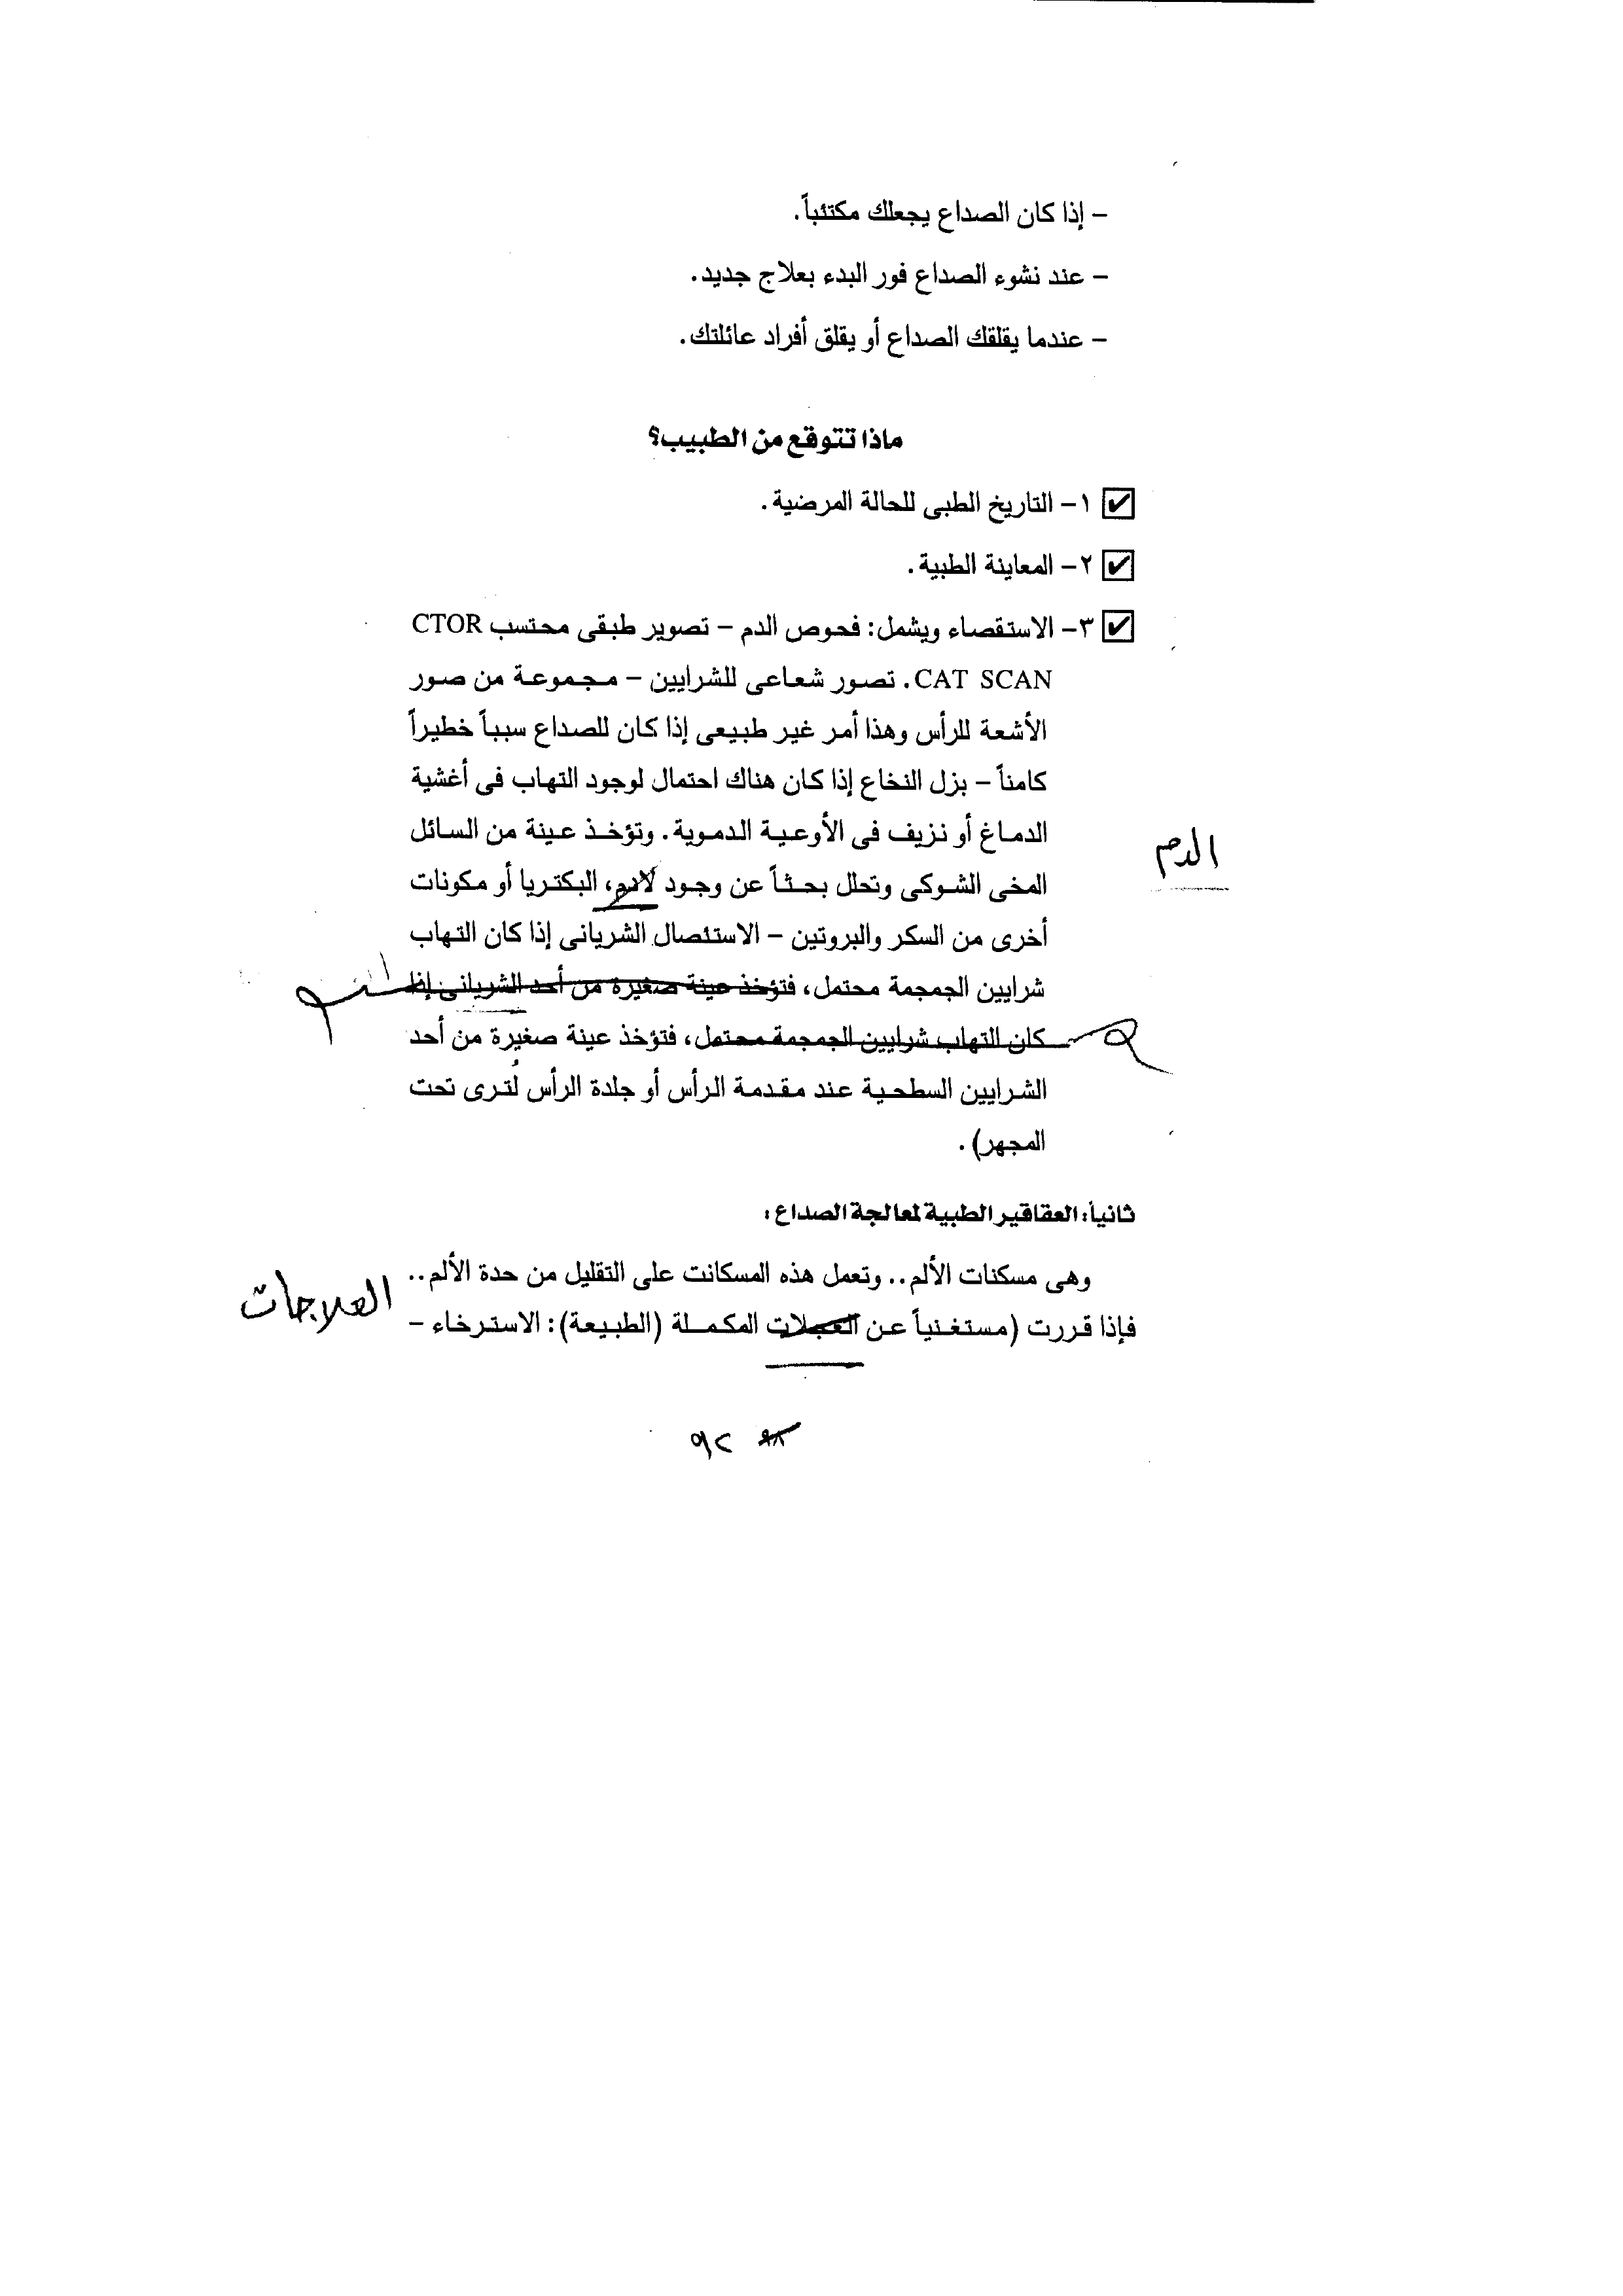 – إذا كان الصداع يجعلك مكتئباً.
– عند نشوء الصداع فور البدء بعلاج جديد.
– عندما يقلقك الصداع أو يقلق أفراد عائلتك.
ماذا تتوقع من الطبيب؟
١– التاريخ الطبى للحالة المرضية.
٢– المعاينة الطبية.
٣– الاستقصاء ويشمل: فحوص الدم – تصوير طبقى محتسب CTOR
CAT SCAN. تصور شعاعى للشرايين – مجموعة من صور
الأشعة للرأس وهذا أمر غير طبيعى إذا كان للصداع سبباً خطيراً
كامناً – بزل النخاع إذا كان هناك احتمال لوجود التهاب فى أغشية
الدماغ أو نزيف فى الأوعية الدموية. وتؤخذ عينة من السائل
الدم
المخى الشوكى وتحلل بحثاً عن وجود لادم، البكتريا أو مكونات
أخرى من السكر والبروتين – الاستئصال الشريانى إذا كان التهاب
شرايين الجمجمة محتمل، فتؤخذ عينة صغيرة من أحد الشريانى إذا
كان التهاب شرايين الجمجمة محتمل، فتؤخذ عينة صغيرة من أحد
الشرايين السطحية عند مقدمة الرأس أو جلدة الرأس لتُرى تحت
المجهر).
ثانياً: العقاقير الطبية لمعالجة الصداع:
وهى مسكنات الألم.. وتعمل هذه المسكانت على التقليل من حدة الألم..
العلاجات
فإذا قررت (مستغنياً عن العجلات المكملة (الطبيعة): الاسترخاء –
٩٨ ٩٢